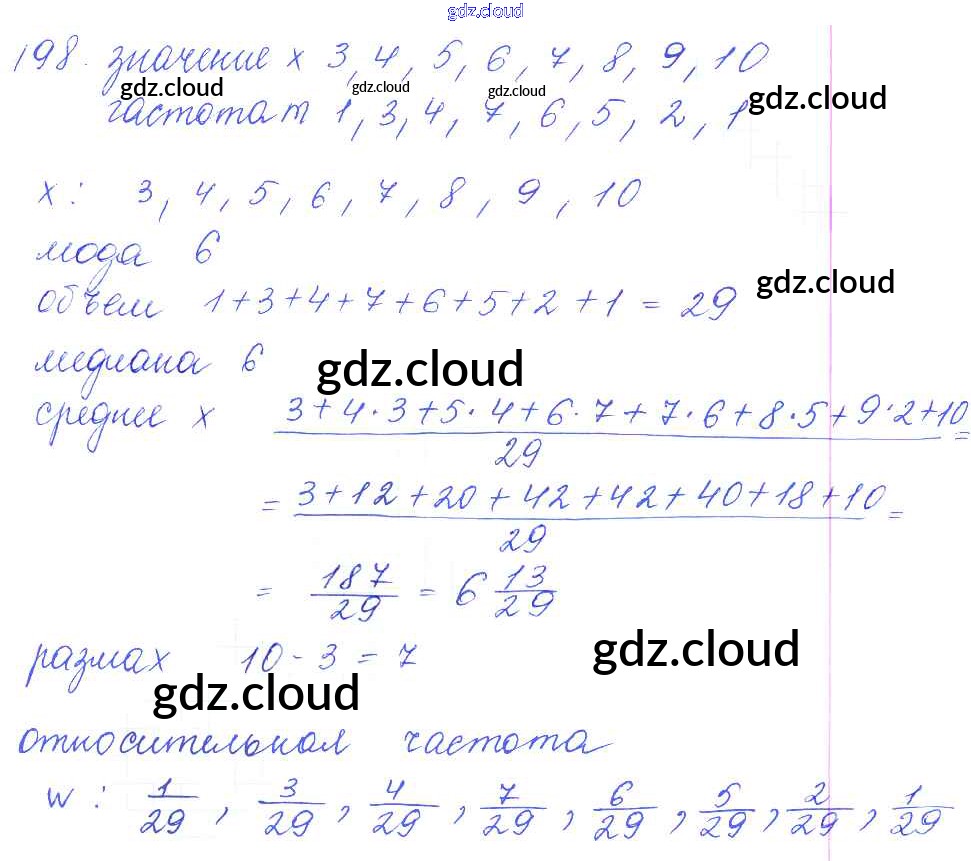 gdz.cloud
198. значение x 3, 4, 5, 6, 7, 8, 9, 10
gdz.cloud gdz.cloud gdz.cloud gdz.cloud
частота m 1, 3, 4, 7, 6, 5, 2, 1
x: 3, 4, 5, 6, 7, 8, 9, 10
мода 6
gdz.cloud
объем 1+3+4+7+6+5+2+1 = 29
медиана 6
gdz.cloud
среднее x (3+4·3+5·4+6·7+7·6+8·5+9·2+10)/29 =
= (3+12+20+42+42+40+18+10)/29 =
= 187/29 = 6 13/29
размах 10-3=7
gdz.cloud
gdz.cloud
относительная частота
w: 1/29, 3/29, 4/29, 7/29, 6/29, 5/29, 2/29, 1/29